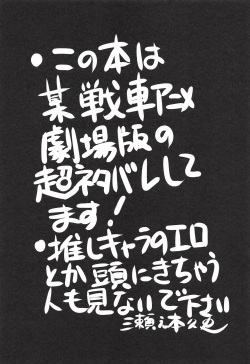 •この本は
某戦車アニメ
劇場版の
超ネタバレして
ます!
•推しキャラのエロ
とか頭にきちゃう
人も見ないで下さい
三瀬本久也